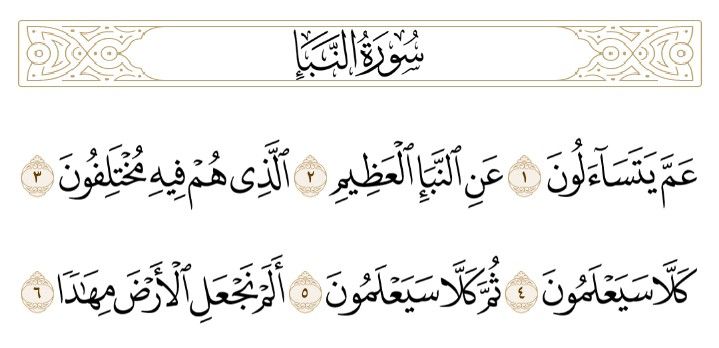 سُورَةُ النَّبَإِ
عَمَّ يَتَسَآءَلُونَ ١ عَنِ ٱلنَّبَإِ ٱلْعَظِيمِ ٢ ٱلَّذِى هُمْ فِيهِ مُخْتَلِفُونَ ٣
كَلَّا سَيَعْلَمُونَ ٤ ثُمَّ كَلَّا سَيَعْلَمُونَ ٥ أَلَمْ نَجْعَلِ ٱلْأَرْضَ مِهَٰدًا ٦